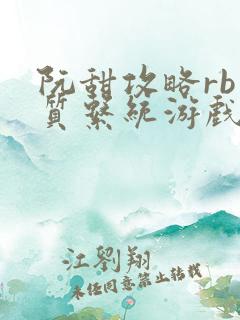 阮甜攻略rb
质系统游戏
江劉翔
未经同意禁止转载